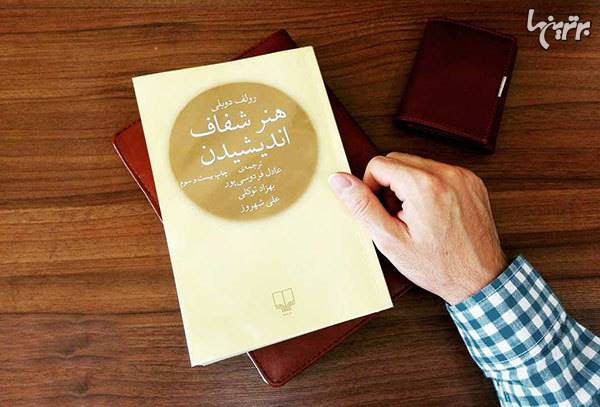 برترین‌ها
رولف دوبلی
هنر شفاف
اندیشیدن
ترجمه‌ی
چاپ بیست و سوم
عادل فردوسی‌پور
بهزاد توکلی
علی شهروز